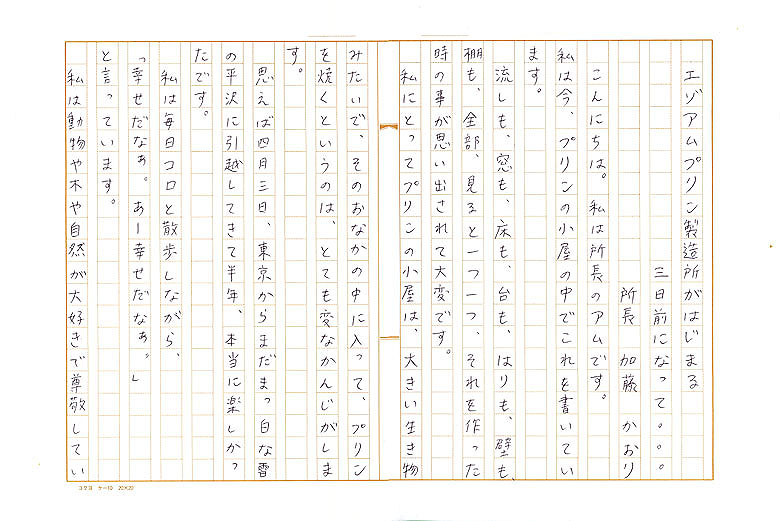 エゾアムプリン製造所がはじまる
三日前になって。。。
所長　加藤　かおり
こんにちは。私は所長のアムです。
私は今、プリンの小屋の中でこれを書いてい
ます。
流しも、窓も、床も、台も、はりも、壁も、
棚も、全部、見ると一つ一つ、それを作った
時の事が思い出されて大変です。
私にとってプリンの小屋は、大きい生き物
みたいで、そのおなかの中に入って、プリン
を焼くというのは、とても変なかんじがしま
す。
思えば四月三日、東京からまだまっ白な雪
の平沢に引越してきて半年、本当に楽しかっ
たです。
私は毎日コロと散歩しながら、
「幸せだなぁ。あー幸せだなぁ。」
と言っています。
私は動物や木や自然が大好きで尊敬してい
コクヨ ケー10 20×20